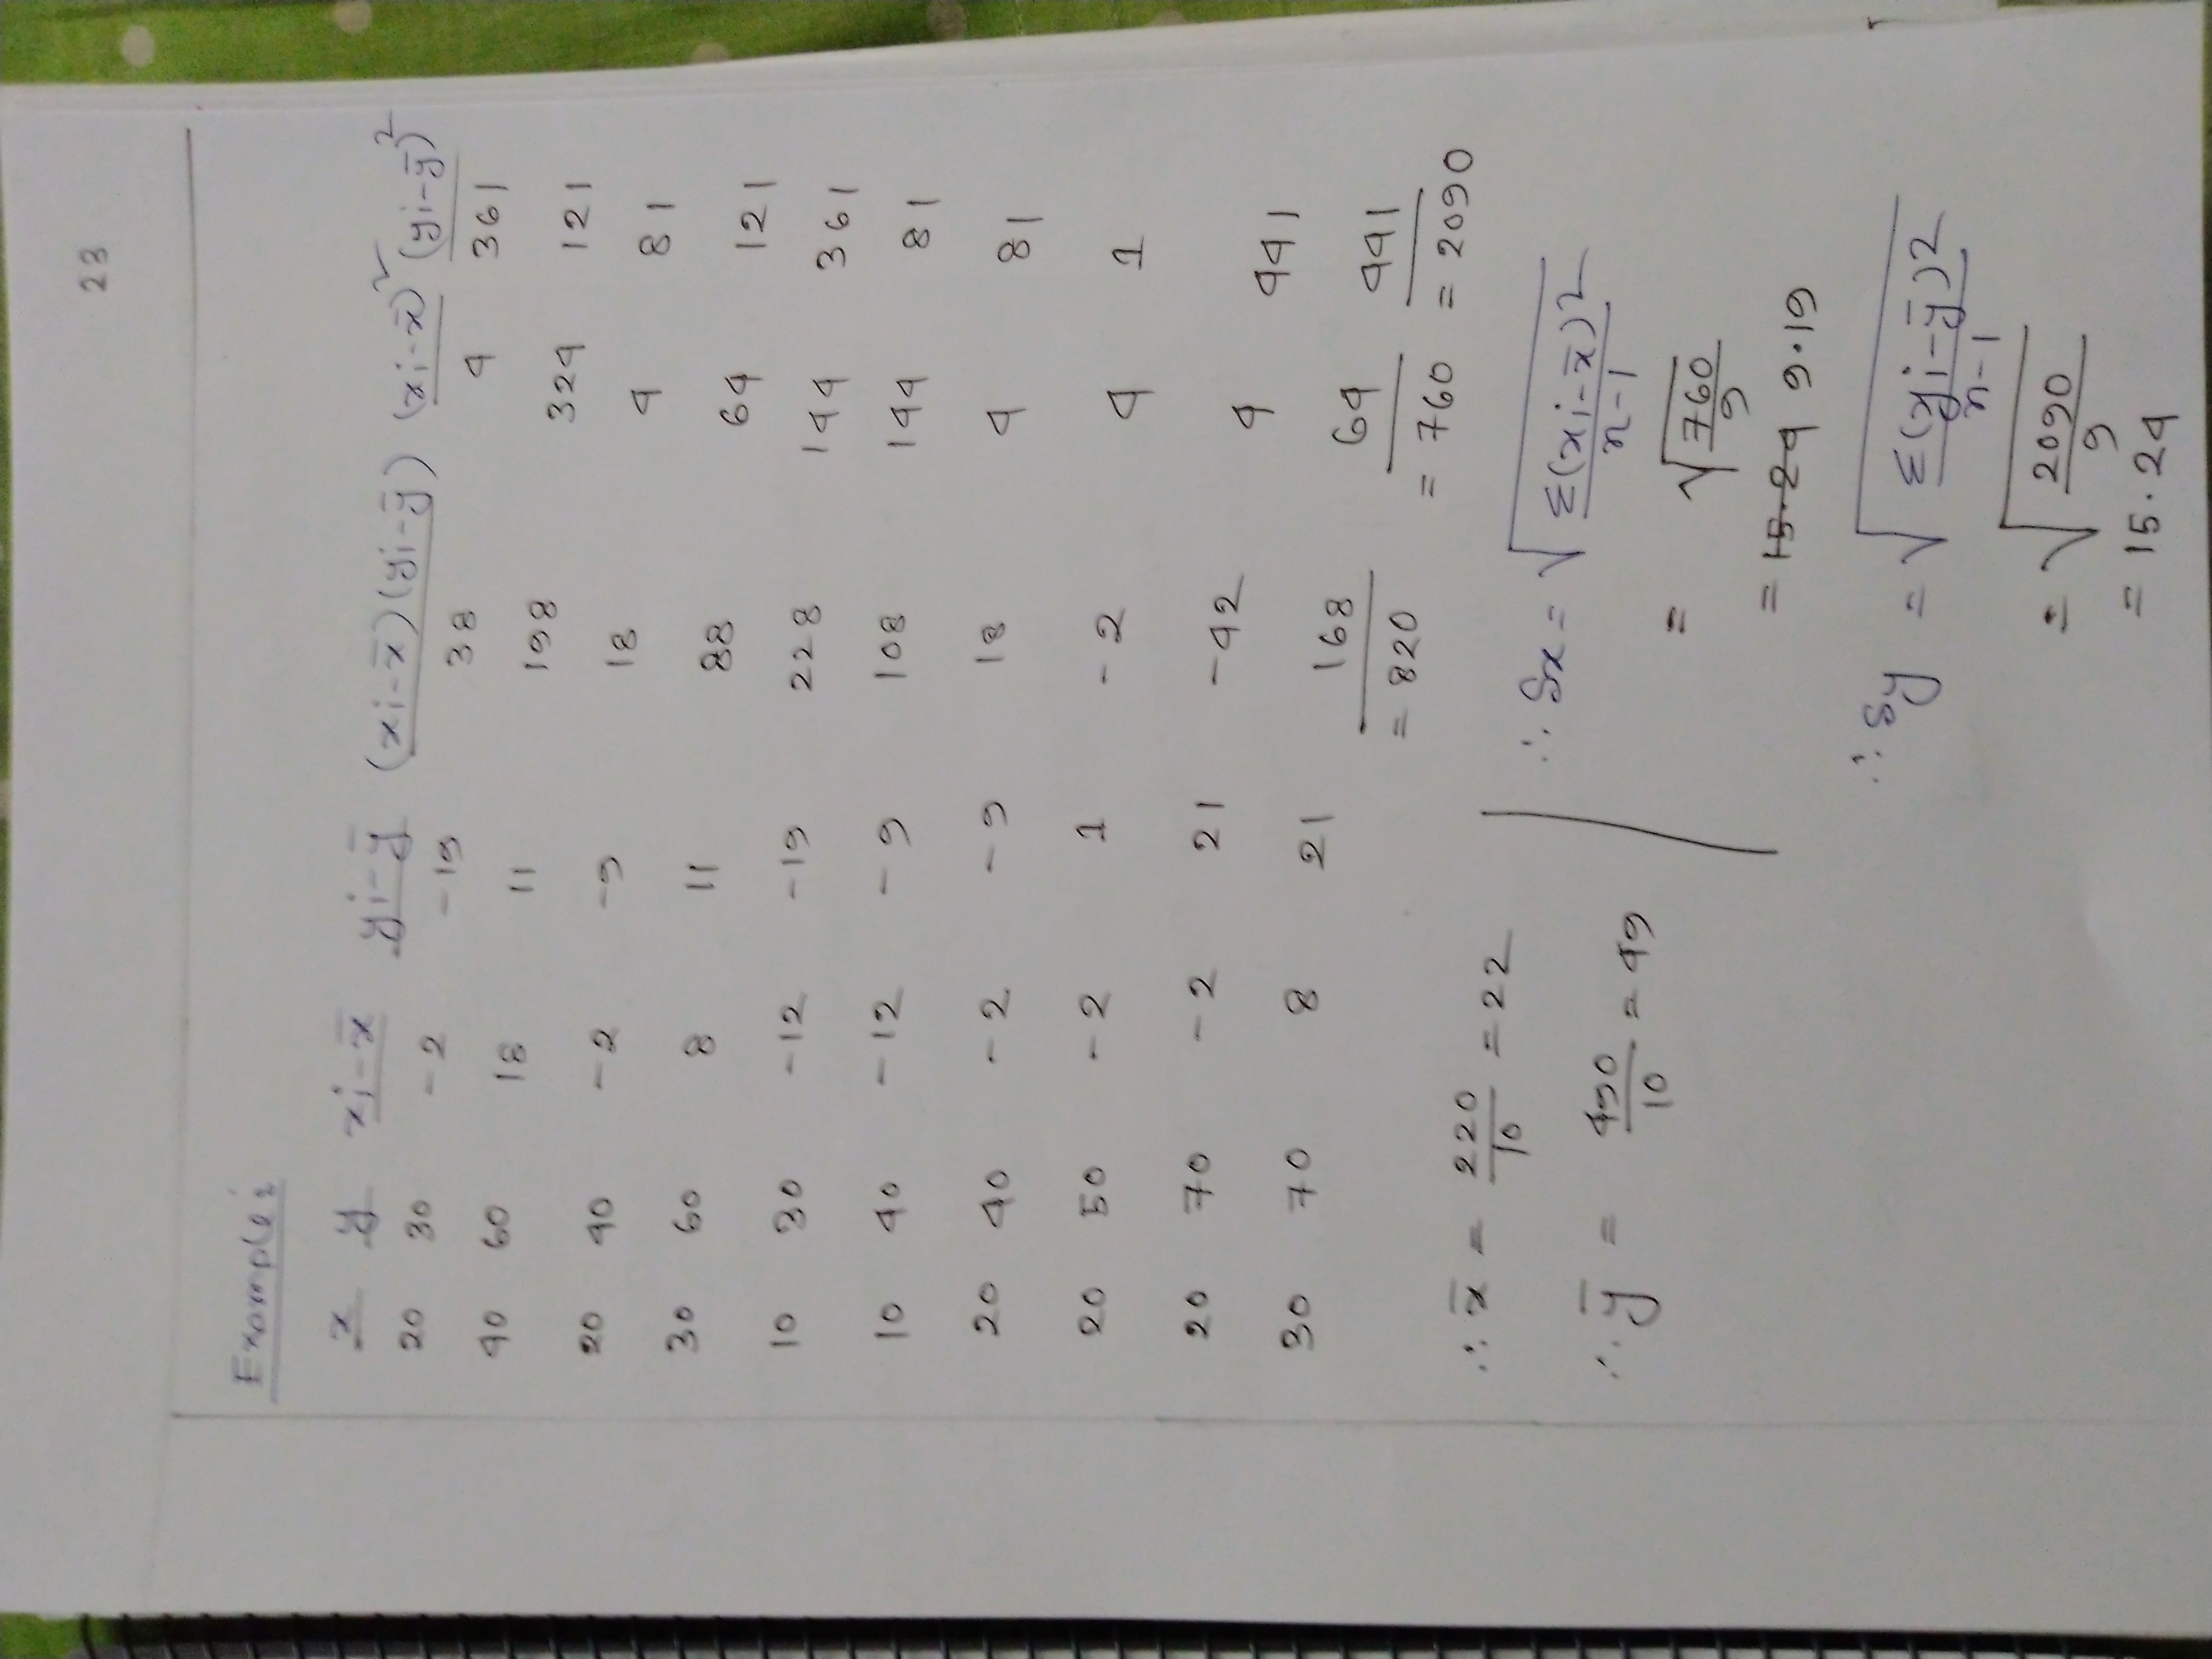 23
Example:
x y xi-x̄ yi-ȳ (xi-x̄)(yi-ȳ) (xi-x̄)² (yi-ȳ)²
20 30 -2 -19 38 4 361
40 60 18 11 198 324 121
20 40 -2 -9 18 4 81
30 60 8 11 88 64 121
10 30 -12 -19 228 144 361
10 40 -12 -9 108 144 81
20 40 -2 -9 18 4 81
20 50 -2 1 -2 4 1
20 70 -2 21 -42 4 441
30 70 8 21 168 64 441
= 820 = 760 = 2090
∴ x̄ = 220/10 = 22
∴ ȳ = 490/10 = 49
∴ Sx = √Σ(xi-x̄)2/n-1
= √760/9
= 15.24 9.19
∴ Sy = √Σ(yi-ȳ)2/n-1
= √2090/9
= 15.24